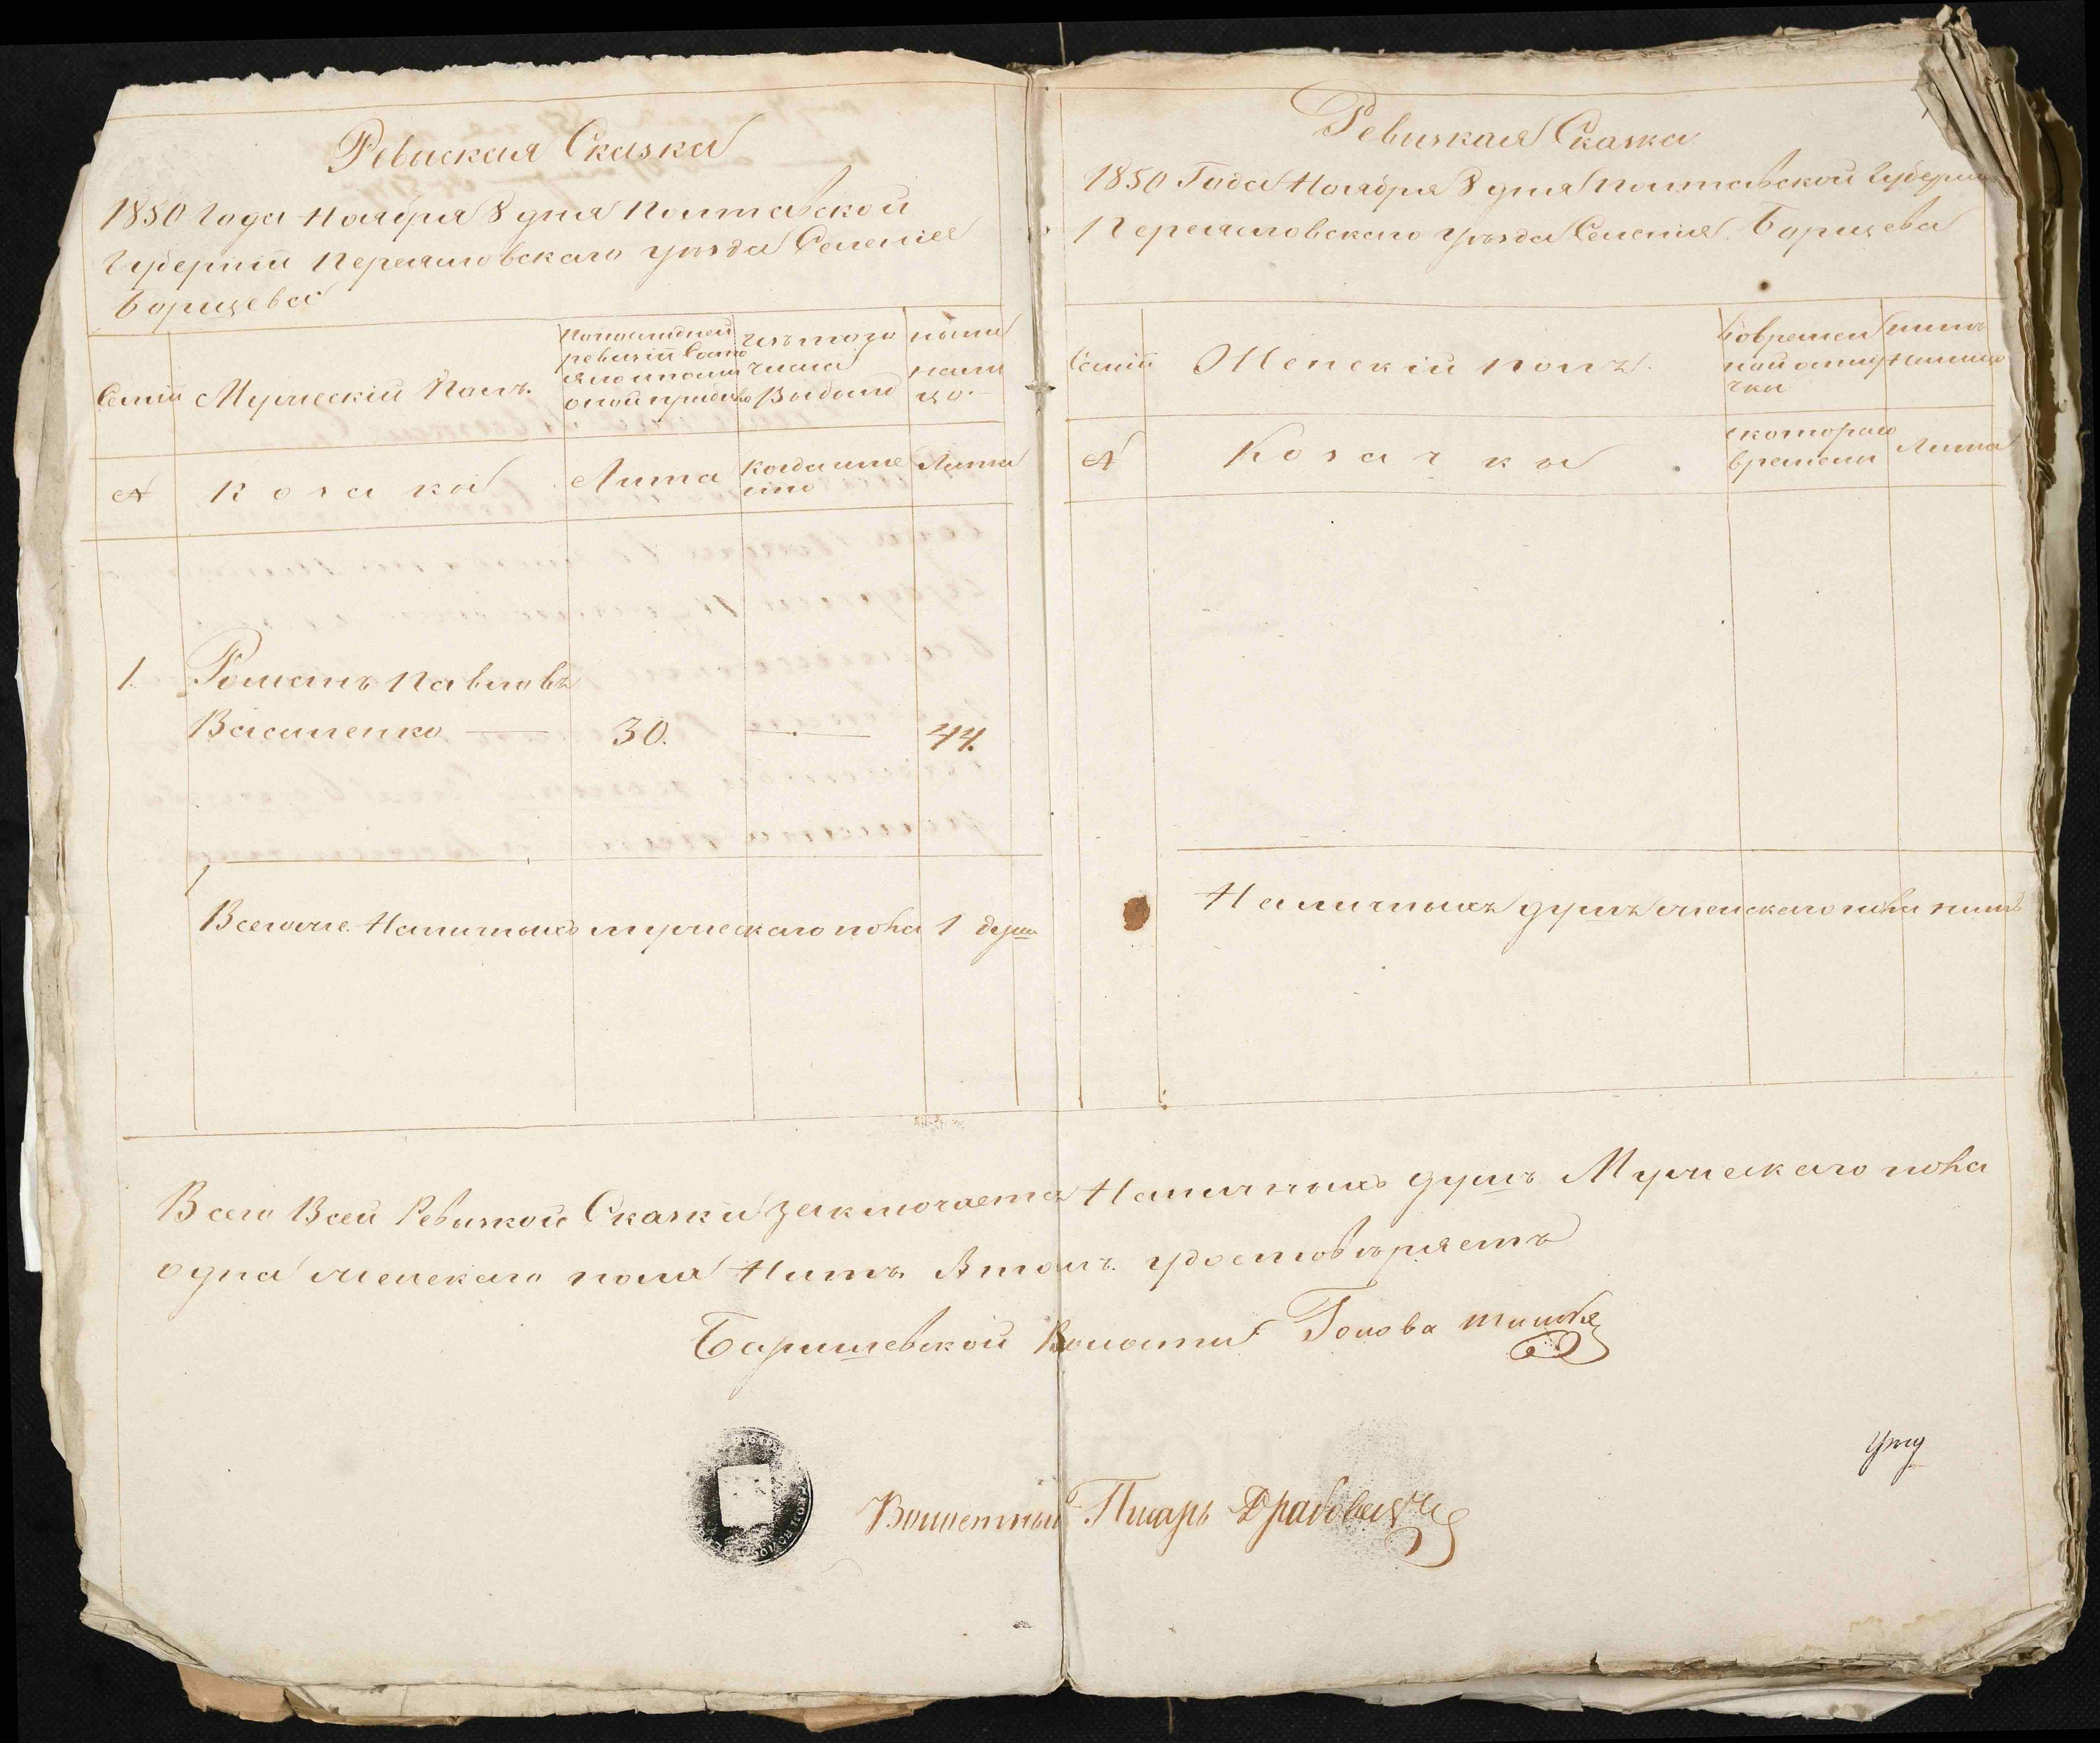 Ревиская Сказка
1850 Года Ноября 8 дня Полтавской
Губерніи Переяшовскаго уѣзда Селенія
Борщева
Семіи
Мужескій Полъ.
Попоследней
ревизіи Сост
ялоипосли
оной прибило
Изътого
числа
Выбыло
ныне
нали
цо.
№
Козаки
Лита
Когдаиме
нно
Лита
1.
Романъ Павловъ
Василенко — 30. — 44.
Всегоже Наличныхъ мужескаго пола 1 душа
Ревизкая Сказка
1850 Года Ноября 8 дня Полтавской Губерніи
Переясловскаго уѣзда Селенія Борщева
Семіи
Женскій полъ.
Вовремен
ной отлу
чки
нинѣ
Налицо
№
Козачки
скотораго
времени
Лита
Наличныхъ душъ женскаго пола нитъ
Всего Всей Ревизкой Сказки заключается Наличныхъ душъ Мужескаго пола
одна женскаго пола Нитъ Втомъ удостовѣряетъ
Баришевской Волости Голова
Волостный Писарь